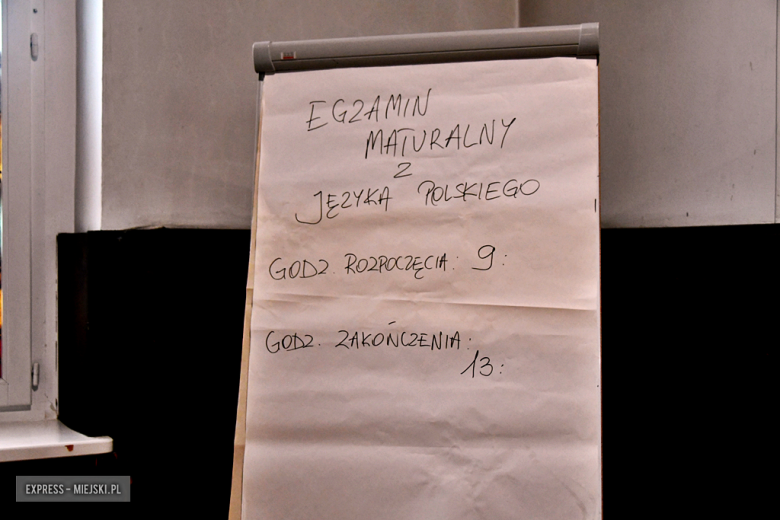 EGZAMIN
MATURALNY
Z
JĘZYKA POLSKIEGO
GODZ. ROZPOCZĘCIA: 9:
GODZ. ZAKOŃCZENIA:
13:
EXPRESS-MIEJSKI.PL